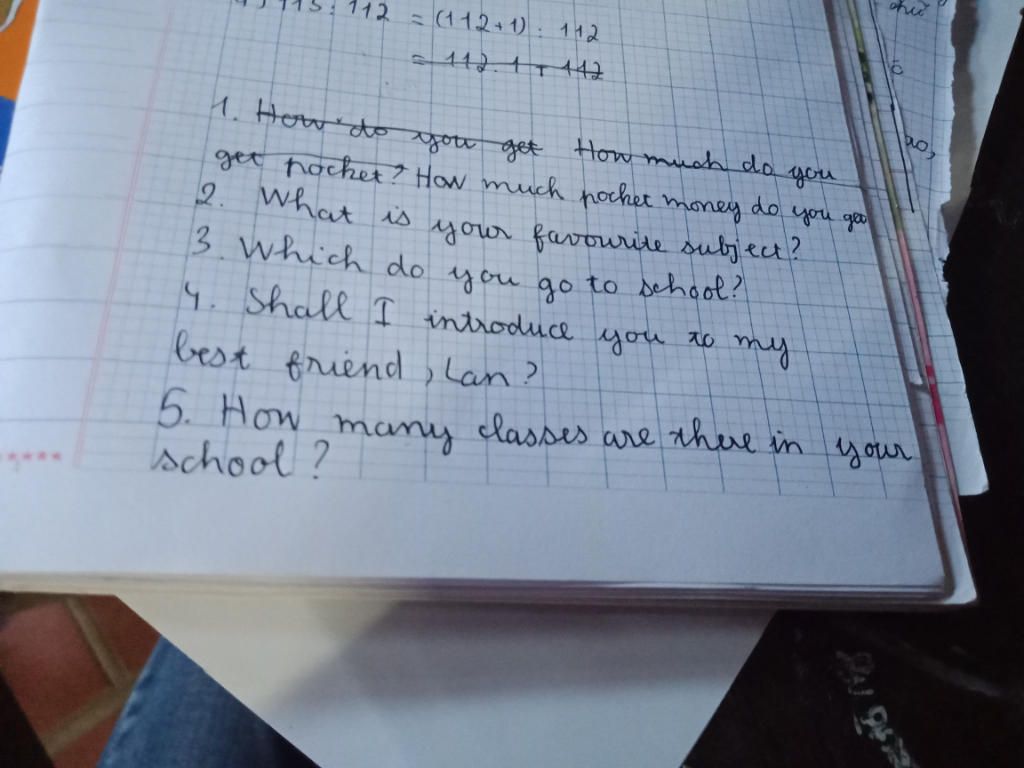 113 : 112 = (112+1) : 112
= 112.1 + 112
1. How do you get How much do you
get pocket? How much pocket money do you get
2. What is your favourite subject?
3. Which do you go to school?
4. Shall I introduce you to my
best friend, Lan?
5. How many classes are there in your
school?